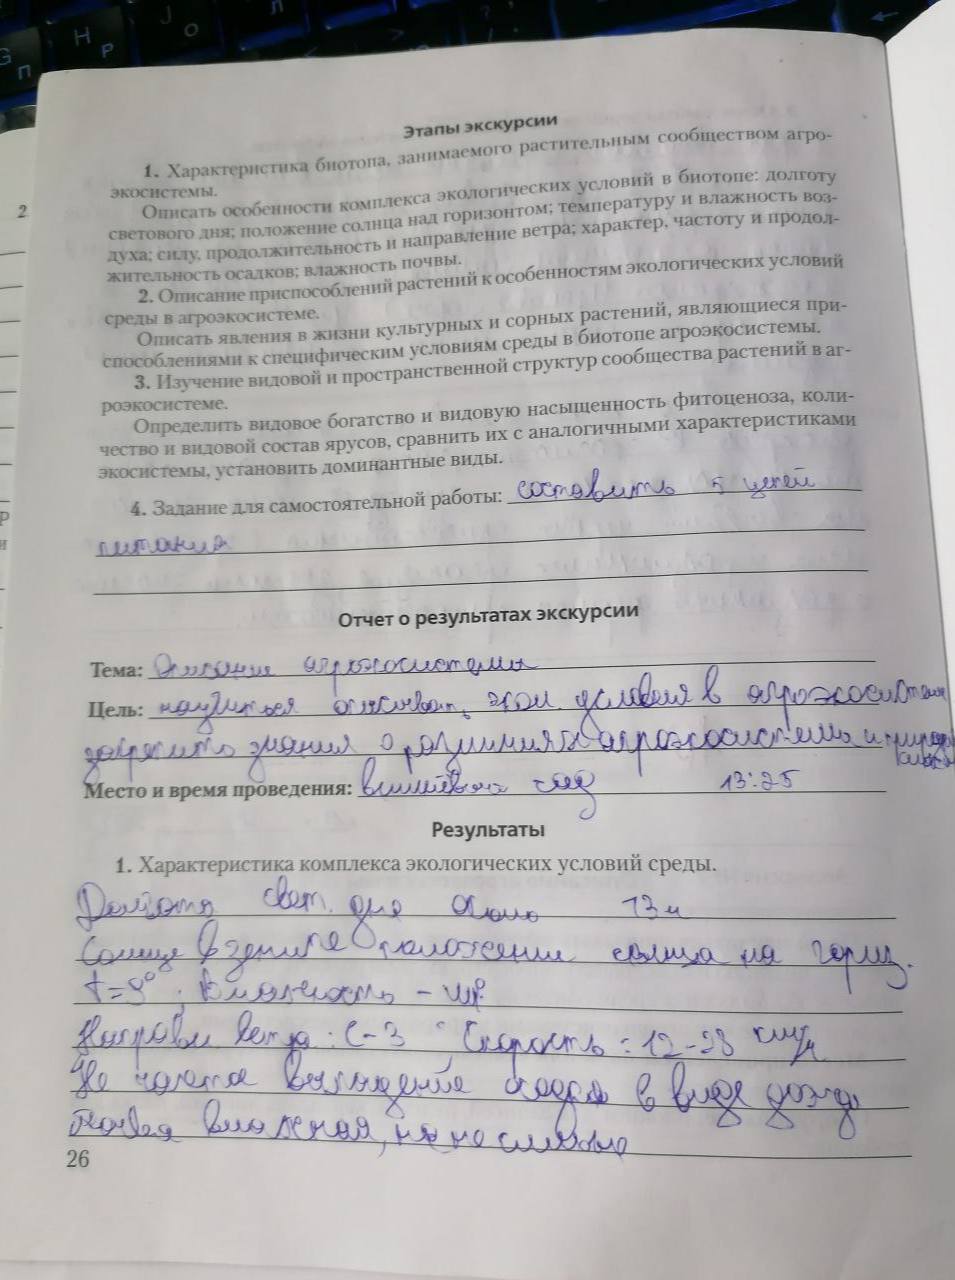 Этапы экскурсии
1. Характеристика биотопа, занимаемого растительным сообществом агро-
экосистемы.
Описать особенности комплекса экологических условий в биотопе: долготу
светового дня; положение солнца над горизонтом; температуру и влажность воз-
духа; силу, продолжительность и направление ветра; характер, частоту и продол-
жительность осадков; влажность почвы.
2. Описание приспособлений растений к особенностям экологических условий
среды в агроэкосистеме.
Описать явления в жизни культурных и сорных растений, являющиеся при-
способлениями к специфическим условиям среды в биотопе агроэкосистемы.
3. Изучение видовой и пространственной структур сообщества растений в аг-
роэкосистеме.
Определить видовое богатство и видовую насыщенность фитоценоза, коли-
чество и видовой состав ярусов, сравнить их с аналогичными характеристиками
экосистемы, установить доминантные виды.
4. Задание для самостоятельной работы: составить 5 цепей
питания
Отчет о результатах экскурсии
Тема: Описание агроэкосистемы
Цель: научиться описывать экол. условия в агроэкосистеме
закрепить знания о различиях агроэкосистемы и
Место и время проведения: вишнёвый сад 13:25
Результаты
1. Характеристика комплекса экологических условий среды.
Долгота свет. дня около 13ч
Солнце в зените положение солнца на гориз.
t=9° Влажность -
Направл ветра: С-З Скорость: 12-28 км/ч
Не частое выпадение осадков в виде дождя
Почва влажная, но не
26